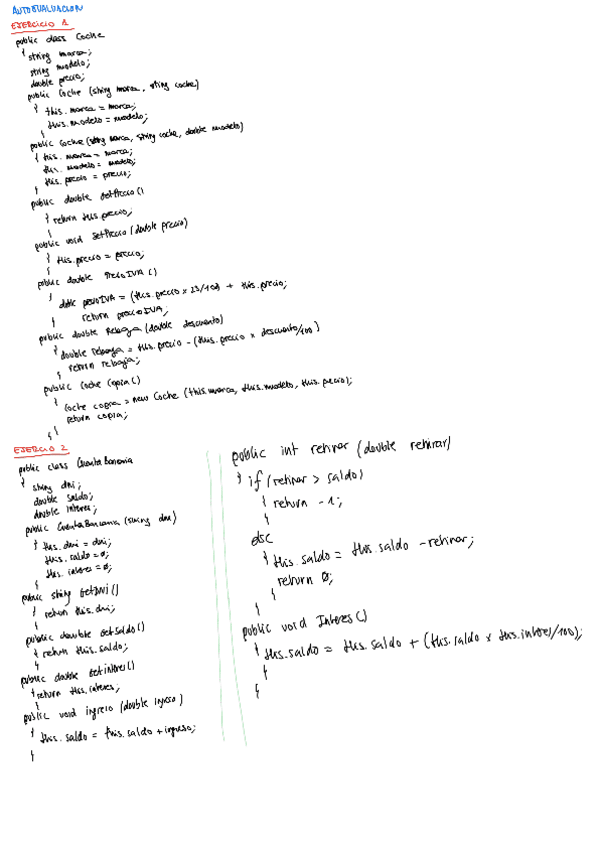 AUTOEVALUACION
EJERCICIO 1
public class Coche
{ string marca;
string modelo;
double precio;
public Coche (string marca, string coche)
{ this.marca = marca;
this.modelo = modelo;
}
public Coche (string marca, string coche, double modelo)
{ this.marca = marca;
this.modelo = modelo;
this.precio = precio;
}
public double GetPrecio()
{ return this.precio;
}
public void SetPrecio (double precio)
{ this.precio = precio;
}
public double PrecioIVA ()
{ double precioIVA = (this.precio x 23/100) + this.precio;
return precioIVA;
}
public double Rebaja (double descuento)
{ double rebaja = this.precio - (this.precio x descuento/100)
return rebaja;
}
public Coche Copia ()
{ Coche copia = new Coche (this.marca, this.modelo, this.precio);
return copia;
}
}
EJERCIO 2
public class CuentaBancaria
{ string dni;
double saldo;
double interes;
public CuentaBancaria (string dni)
{ this.dni = dni;
this.saldo = 0;
this.interes = 0;
}
public string GetDni()
{ return this.dni;
}
public double GetSaldo()
{ return this.saldo;
}
public double GetInteres()
{ return this.interes;
}
public void ingreso (double ingreso)
{ this.saldo = this.saldo + ingreso;
}
public int retirar (double retirar)
{ if (retirar > saldo)
{ return -1;
}
else
{ this.saldo = this.saldo - retirar;
return 0;
}
}
public void Interes()
{ this.saldo = this.saldo + (this.saldo x this.interes/100);
}
}